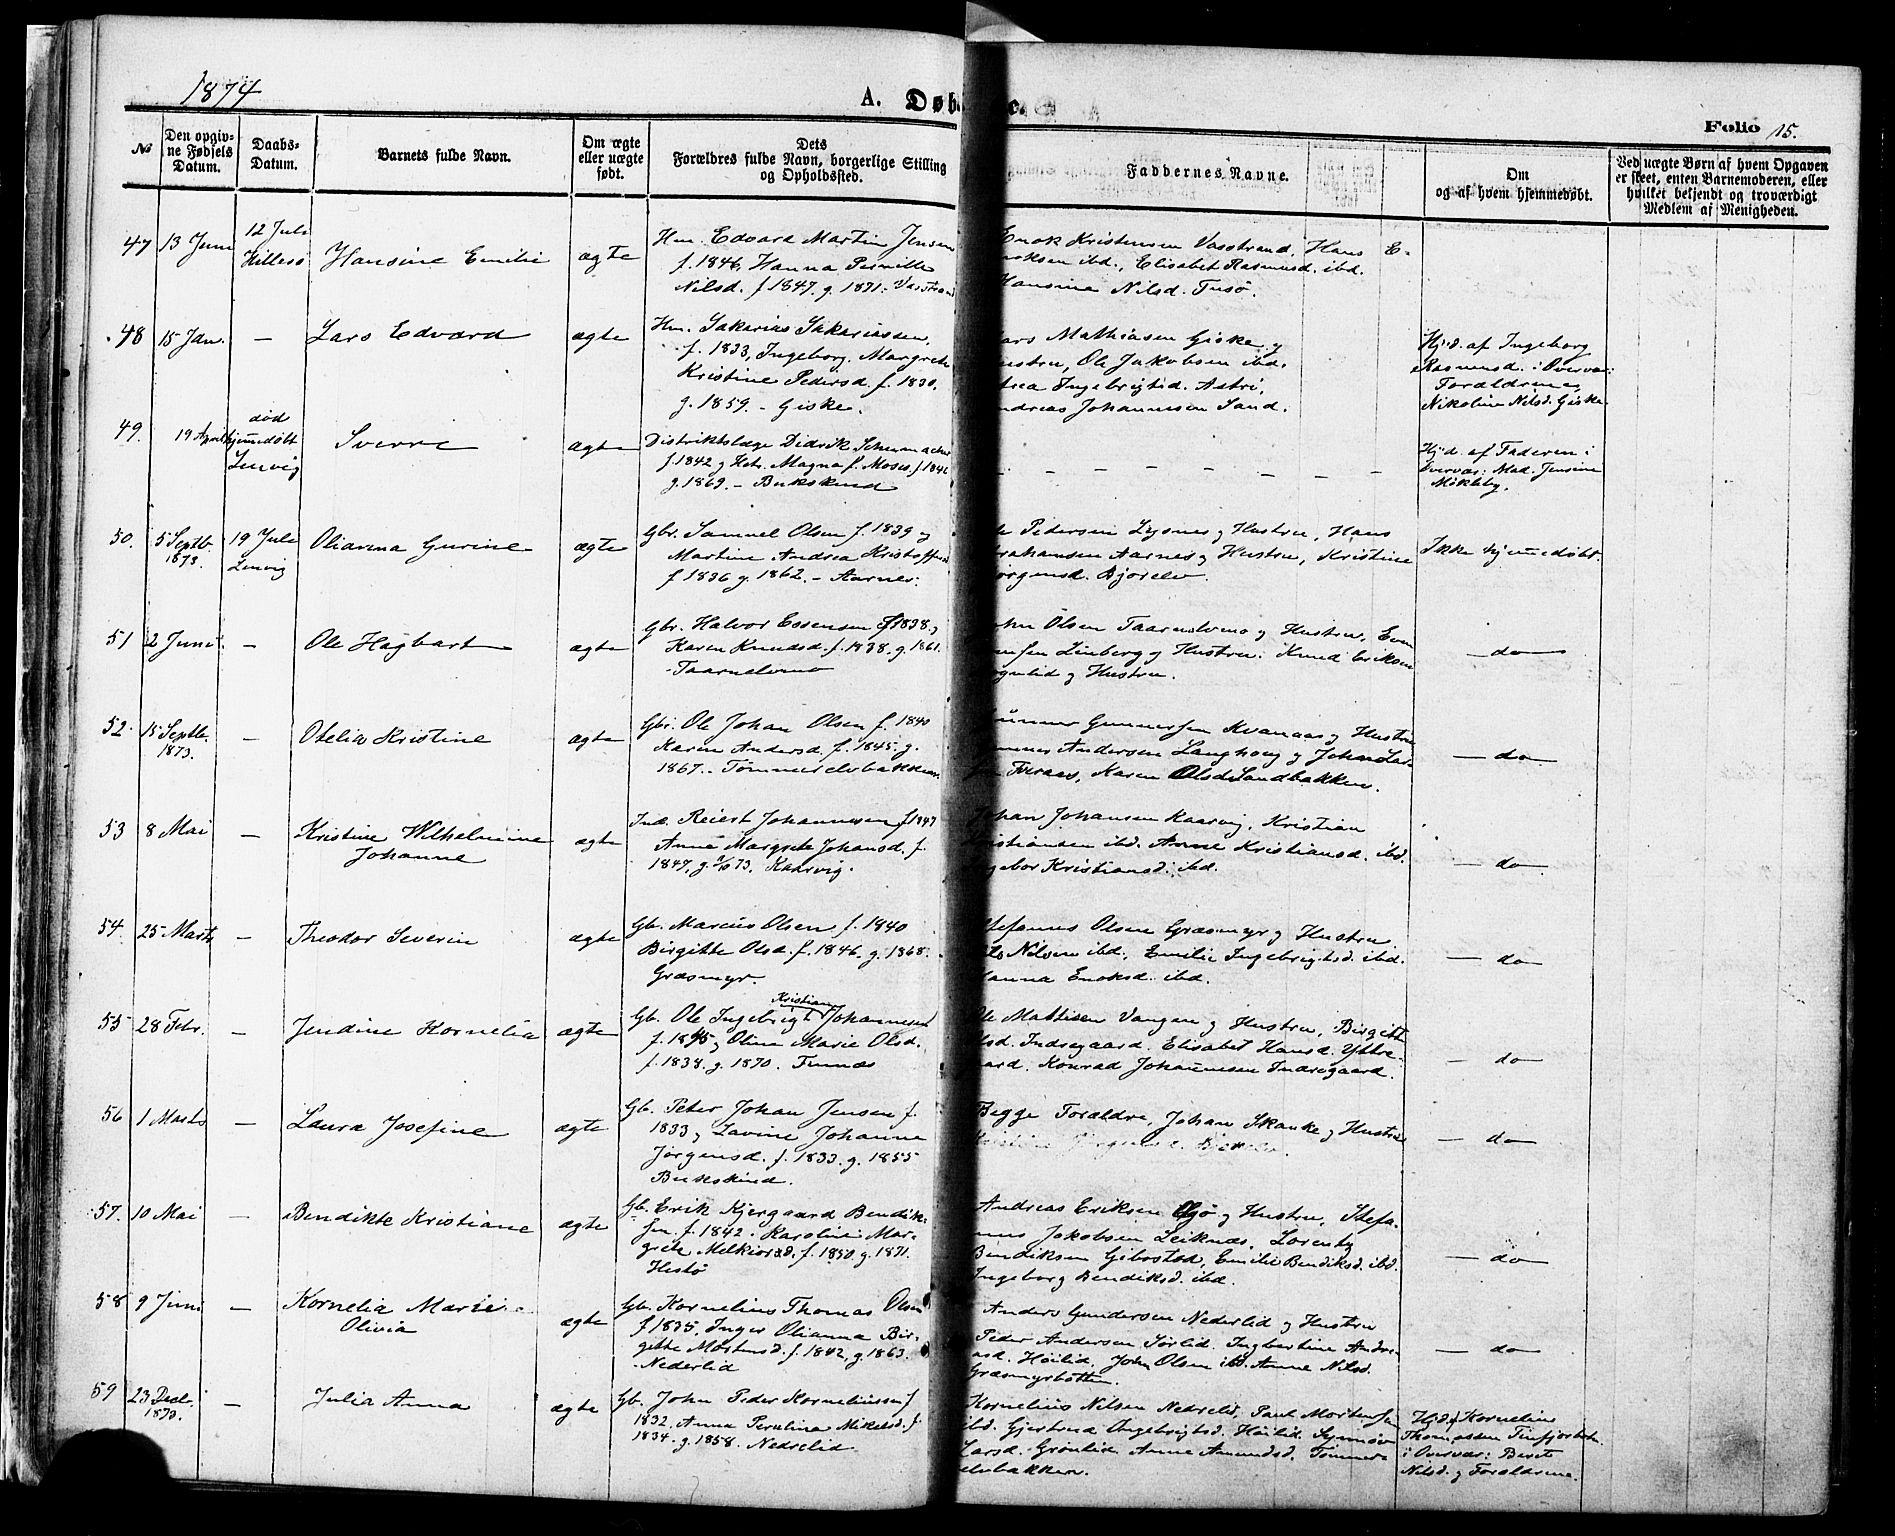 1874
A. Døb
Folio 15.
No
Den opgiv-
ne Fødsels
Datum.
Daabs-
Datum.
Barnets fulde Navn.
Om ægte
eller uægte
født.
Dets
Forældres fulde Navn, borgerlige Stilling
og Opholdssted.
Faddernes Navne.
Om
og af hvem hjemmedøbt.
Ved uægte Børn af hvem Opgaven
er skeet, enten Barnemoderen, eller
hvilket bekjendt og troværdigt
Medlem af Menigheden.
47 13 Juni 12 Juli
Hillesø
Hansine Emilie
ægte
Hm. Edvard Martin Jensen
f. 1846, Hanna Pernille
Nilsd. f 1847. g. 1871.
Enok Kristensen Vasstrand, Hans E-
noksen ibd., Elisabet Rasmusd. ibd.
Hansina Nilsd. Tusø.
48 15 Jan. —
Lars Edvard
ægte
Hm. Sakarias Sakariassen,
f. 1833, Ingeborg Margrete
Kristine Pedersd. f. 1830,
g. 1859. - Giske.
Lars Mathiasen Giske og
Hustru, Ole Jakobsen ibd.
Ingebrigtsd.
Andreas Johannesen Sand.
Hj:d. af Ingeborg
Rasmusd. i Overvær:
Forældrene,
Nikoline Nilsd. Giske.
49. 19 April død
hjemmedøbt
Lenvig
Sverre
ægte
Distriktslæge Didrik
f. 1842 og Magna f.
g. 1869. - Bukskind
— — — — — — — —
Hj:d. af Faderen i
Overvær: Mad. Jensine
Møkleby.
50. 5 Septb.
1873.
19 Juli
Lenvig
Olianna Gurine
ægte
Gbr. Samuel Olsen f. 1839 og
Martine Andrea
f 1836 g. 1862. - Aarnes.
Pedersen Lysnes og Hustru, Hans
Abrahamsen Aarnes og Hustru, Kristine
Jørgensd. Bjorelv.
Ikke hjemmedøbt.
51 2 Juni —
Ole Hagbart
ægte
Gbr. Halvor Esensen f 1838 og
Karen Knudsd. f. 1838. g. 1861.
Taarnelvmo
John Olsen Taarnelvmo og Hustru, Even
Linberg og Hustru. Knud Eriksen
og Hustru.
— do —
52. 15 Septb.
1873.
—
Otelia Kristine
ægte
Gbr. Ole Johan Olsen f. 1840
Karen Andersd. f. 1845. g.
1867. - Tømmerelvbakken.
Gunner Gunnersen Kvanaas og Hustru
Andersen Langhaug og Johan
Karen Olsd. Sandbakken.
— do —
53 8 Mai —
Kristine Wilhelmine
Johanne
ægte
Reiert Johannesen f 1847
Anne Margrete Johansd. f.
1847, g. 73. Kaarvig.
Johan Johansen Kaarvig, Kristian
Kristiansen ibd. Anne Kristiansd. ibd.
Ingebor Kristiansd. ibd.
— do —
54. 25 Marts —
Theodor Severin
ægte
Gb. Marcus Olsen f. 1840
Birgitte Olsd. f. 1846. g. 1868.
Græsmyr.
Stefanus Olsen Græsmyr og Hustru
Nils Nilsen ibd. Emilie Ingebrigtsd. ibd.
Hanna Enoksd. ibd.
— do —
55 28 Febr. —
Jendine Kornelia
ægte
Kristian
Gb. Ole Ingebrigt Johannesen
f. 1845 og Oline Marie Olsd.
f. 1838. g. 1870. Finnæs
Ole Mattisen Vangen og Hustru, Birgitte
Olsd. Indregaard. Elisabet Hansd. Yttre-
gaard. Konrad Johannesen Indregaard.
— do —
56 1 Marts —
Laura Josefine
ægte
Gb. Peter Johan Jensen f.
1833 og Lavine Johanna
Jørgensd. f. 1833. g. 1855
Bukskind.
Begge Forældre, Johan Skanke og Hustru
— do —
57. 10 Mai —
Bendikte Kristiane
ægte
Gb. Erik Kjergaard Bendik-
sen f. 1842. Karoline Mar-
grete Melkiorsd. f. 1850 g. 1871.
Hestø
Andreas Eriksen og Hustru, Stefa-
nus Jakobsen Leiknæs, Lorents
Bendiksen Gibostad, Emilie Bendiksd. ibd.
Ingeborg Bendiksd. ibd.
— do —
58 9 Juni —
Kornelia Marie
Olivia
ægte
Gb. Kornelius Thomas Olsen
f 1835, Inger Olianna Bir-
gitte Mortensd. f. 1842, g. 1863.
Nederlid
Anders Gundersen Nederlid og Hustru
Peder Andersen Sørlid. Ingbertine Andre-
asd. Høilid, John Olsen ibd. Anne Nilsd.
Græsmyrbotten.
— do —
59 23 Decb.
1873.
—
Julia Anna
ægte
Gb. John Peder Korneliussen f
1832. Anna Mikelsd. f.
1834. g. 1858. Nedrelid
Kornelius Nilsen Nedrelid, Paul Mortensen
ibd. Gjertrud Ingebrigtsd. Høilid. Synnøv
Larsd. Grønlid. Anne Amundsd. Tømmer-
elvbakken.
Hj:d. af Kornelius
Thomassen
i Overvær: Berit
Nilsd. og Forældrene.